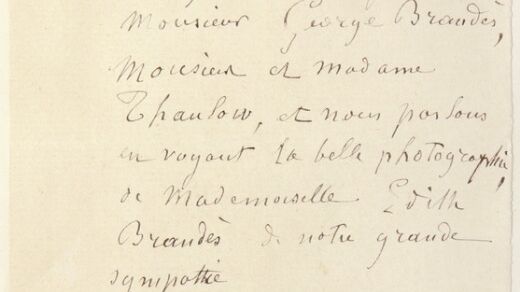 Monsieur George Brandès,
Monsieur et madame
Thaulow, et nous parlons
en voyant la belle photographie
de Mademoiselle Edith
Brandès de notre grande
sympathie